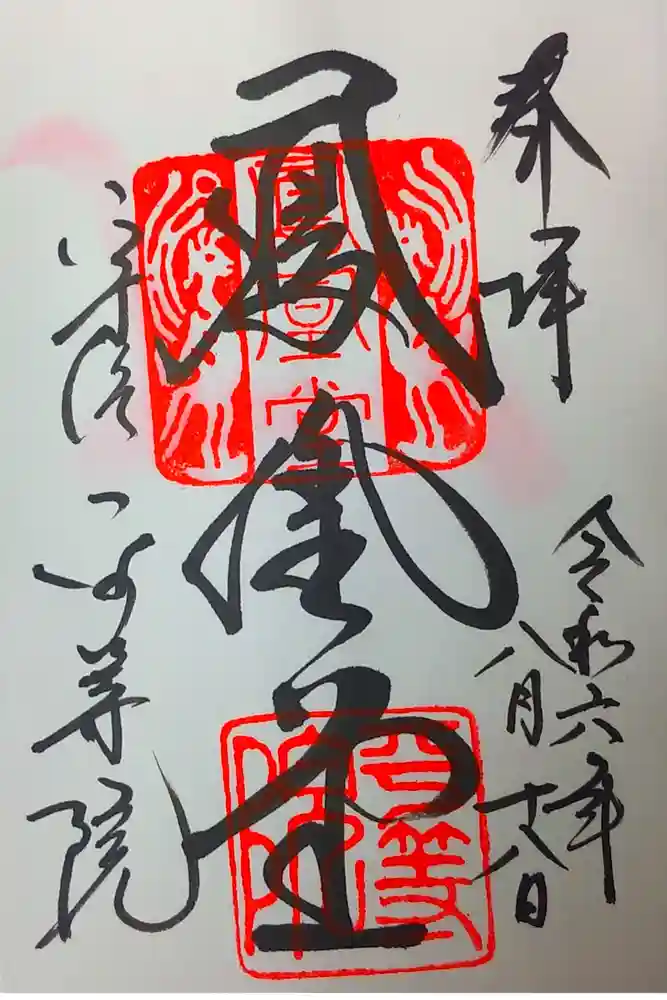 奉拝
令和六年
八月十八日
鳳凰堂
宇治
平等院
鳳凰堂
平等院印